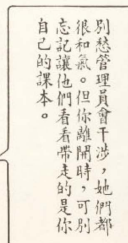 別愁管理員會干涉，她們都
很和氣。但你離開時，可別
忘記讓他們看看帶走的是你
自己的課本。